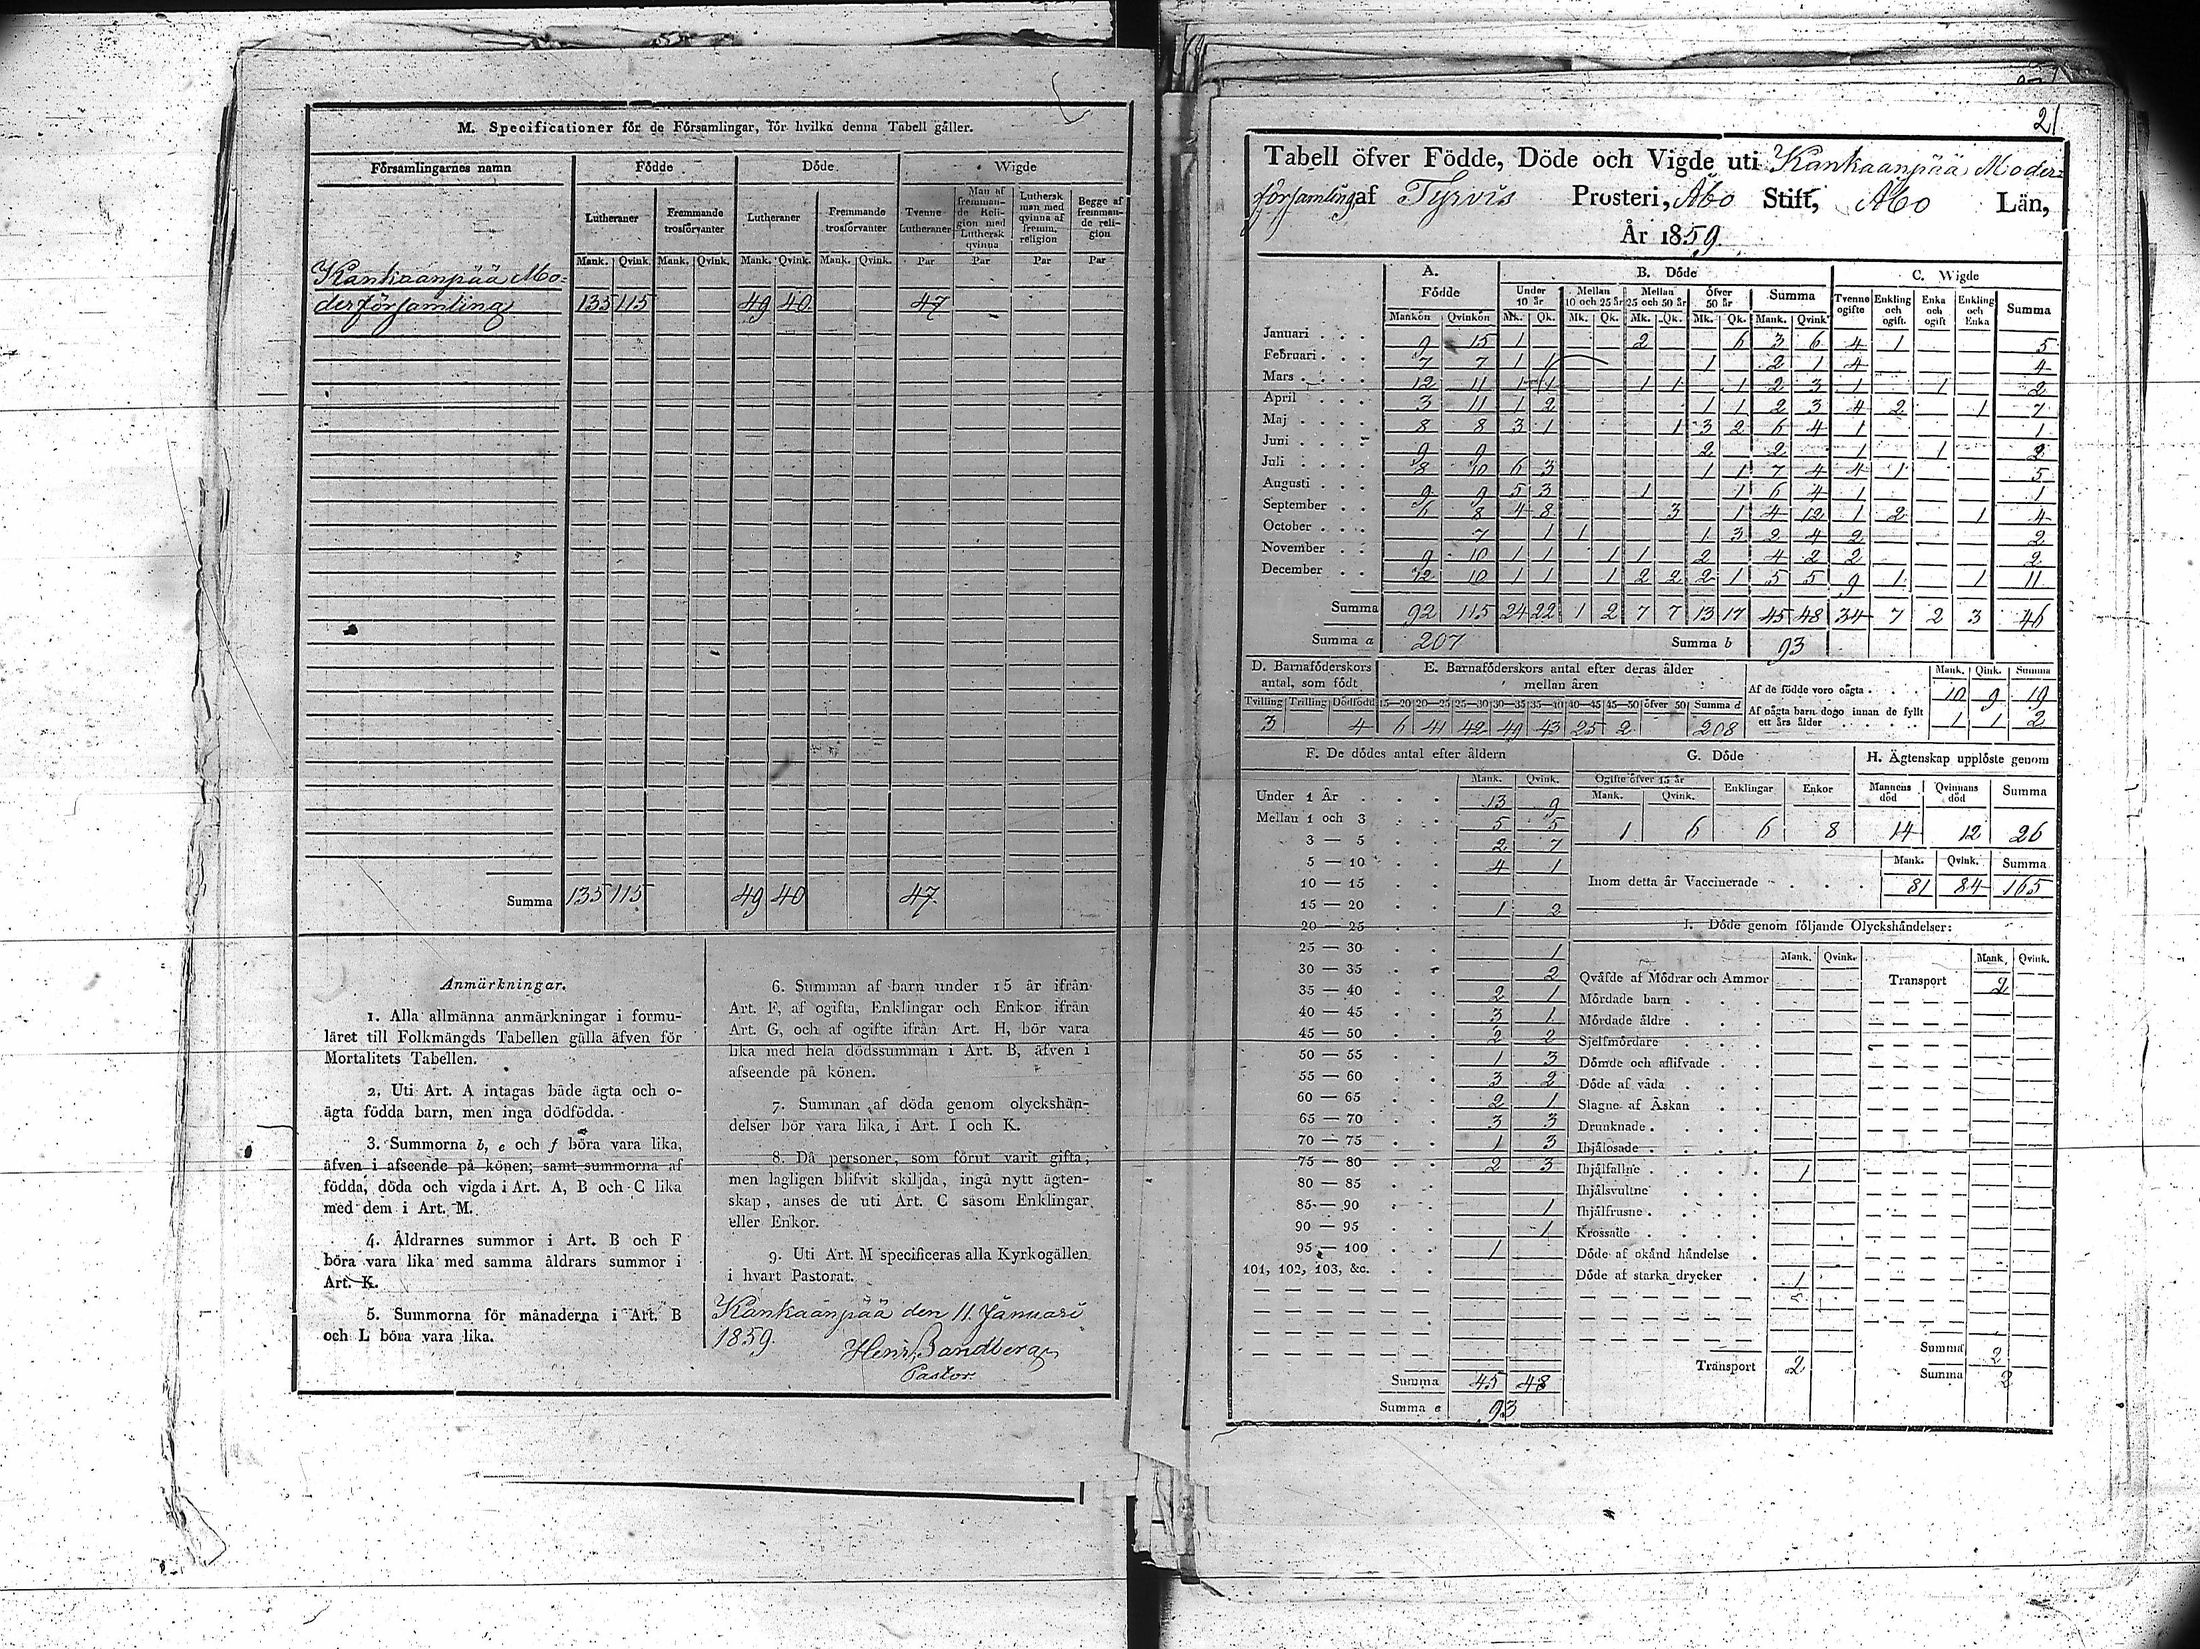 M. Specificationer för de Församlingar, för hvilka denna Tabell gäller.
Församlingarnes namn Födde Döde Wigde
Lutheraner Fremmande trosförvanter Lutheraner Fremmande trosförvanter Tvenne Lutheraner Man af fremmande Religion med Luthersk qvinna Luthersk man med qvinna af fremm. religion Begge af fremmande religion
Mank. Qvink. Mank. Qvink. Mank. Qvink. Mank. Qvink. Par Par Par Par
Kankaanpää Mo=
derförsamling 135 115 49 40 47
Summa 135 115 49 40 47
Anmärkningar.
1. Alla allmänna anmärkningar i formu-
läret till Folkmängds Tabellen gälla äfven för
Mortalitets Tabellen.
2. Uti Art. A intagas både ägta och o-
ägta födda barn, men inga dödfödda.
3. Summorna b, e och f böra vara lika,
äfven i afseende på könen; samt summorna af
födda, döda och vigda i Art. A, B och C lika
med dem i Art. M.
4. Åldrarnes summor i Art. B och F
böra vara lika med samma åldrars summor i
Art. K.
5. Summorna för månaderna i Art. B
och L böra vara lika.
6. Summan af barn under 15 år ifrån
Art. F, af ogifta, Enklingar och Enkor ifrån
Art. G, och af ogifte ifrån Art. H, bör vara
lika med hela dödssumman i Art. B, äfven i
afseende på könen.
7. Summan af döda genom olyckshän-
delser bör vara lika i Art. I och K.
8. Då personer, som förut varit gifta,
men lagligen blifvit skiljda, ingå nytt ägten-
skap, anses de uti Art. C såsom Enklingar
eller Enkor.
9. Uti Art. M specificeras alla Kyrkogällen
i hvart Pastorat.
Kankaanpää den 11 Januari
1859.
Henr. Sandberg
Pastor.
21
Tabell öfver Födde, Döde och Vigde uti Kankaanpää Moder=
församling af Tyrvis Prosteri, Åbo Stift, Åbo Län,
År 1859.
A. Födde B. Döde C. Wigde
Under 10 år Mellan 10 och 25 år Mellan 25 och 50 år Öfver 50 år Summa Tvenne ogifte Enkling och ogift. Enka och ogift Enkling och Enka Summa
Mankön Qvinkön Mk. Qk. Mk. Qk. Mk. Qk. Mk. Qk. Mank. Qvink.
Januari 9 15 1 2 6 3 6 4 1 5
Februari 7 7 1 1 1 2 1 4 4
Mars 12 11 1 1 1 1 1 2 3 1 1 2
April 3 11 1 2 1 1 2 3 4 2 1 7
Maj 8 8 3 1 1 3 2 6 4 1 1
Juni 9 9 2 2 1 1 2
Juli 8 10 6 3 1 1 7 4 4 1 5
Augusti 9 9 5 3 1 1 6 4 1 1
September 6 8 4 8 3 1 4 12 1 2 1 4
October 7 1 1 1 3 2 4 2 2
November 9 10 1 1 1 1 2 4 2 2 2
December 12 10 1 1 1 2 2 2 1 5 5 9 1 1 11
Summa 92 115 24 22 1 2 7 7 13 17 45 48 34 7 2 3 46
Summa a 207 Summa b 93
D. Barnaföderskors antal, som födt
Tvilling Trilling Dödfödd
3 4
E. Barnaföderskors antal efter deras ålder mellan åren
15—20 20—25 25—30 30—35 35—40 40—45 45—50 öfver 50 Summa d
6 41 42 49 43 25 2 208
Mank. Qink. Summa
Af de födde voro oägta 10 9 19
Af oägta barn dogo innan de fyllt
ett års ålder 1 1 2
F. De dödes antal efter åldern
Mank. Qvink.
Under 1 År 13 9
Mellan 1 och 3 5 5
3 — 5 2 7
5 — 10 4 1
10 — 15
15 — 20 1 2
20 — 25
25 — 30 1
30 — 35 2
35 — 40 2 1
40 — 45 3 1
45 — 50 2 2
50 — 55 1 3
55 — 60 3 2
60 — 65 2 1
65 — 70 3 3
70 — 75 1 3
75 — 80 2 3
80 — 85
85 — 90 1
90 — 95 1
95 — 100 1
101, 102, 103, &c.
Summa 45 48
Summa e 93
G. Döde
Ogifte öfver 15 år Enklingar Enkor
Mank. Qvink.
1 6 6 8
H. Ägtenskap upplöste genom
Mannens död Qvinnans död Summa
14 12 26
Mank. Qvink. Summa
Inom detta år Vaccinerade 81 84 165
I. Döde genom följande Olyckshändelser:
Mank. Qvink. Mank. Qvink.
Qväfde af Mödrar och Ammor Transport 2
Mördade barn
Mördade äldre
Sjelfmördare
Dömde och aflifvade
Döde af våda
Slagne af Åskan
Drunknade
Ihjälosade
Ihjälfallne 1
Ihjälsvultne
Ihjälfrusne
Krossade
Döde af okänd händelse
Döde af starka drycker 1
Transport 2 Summa 2
Summa 2